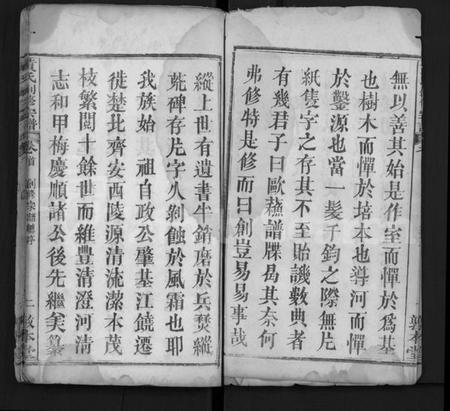 無以善其始是作室而憚於為基
也樹木而憚於培本也導河而憚
於鑿源也當一髮千鈞之際無片
紙隻字之存其不至貽譏數典者
有幾君子曰歐蘇譜牒曷其奈何
弗修特是修而曰創豈易易事哉
敦本堂
縱上世有遺書牛銷磨於兵燹縱
碑存片字人剝蝕於風霜也耶
我族始 祖自政公肇基江饒遷
徙楚北齊安西陵源清流潔本茂
枝繁閱十餘世而維豐清澄河清
志和甲梅慶順諸公後先繼美纂
黃氏創修宗譜 卷首 二 敦本堂